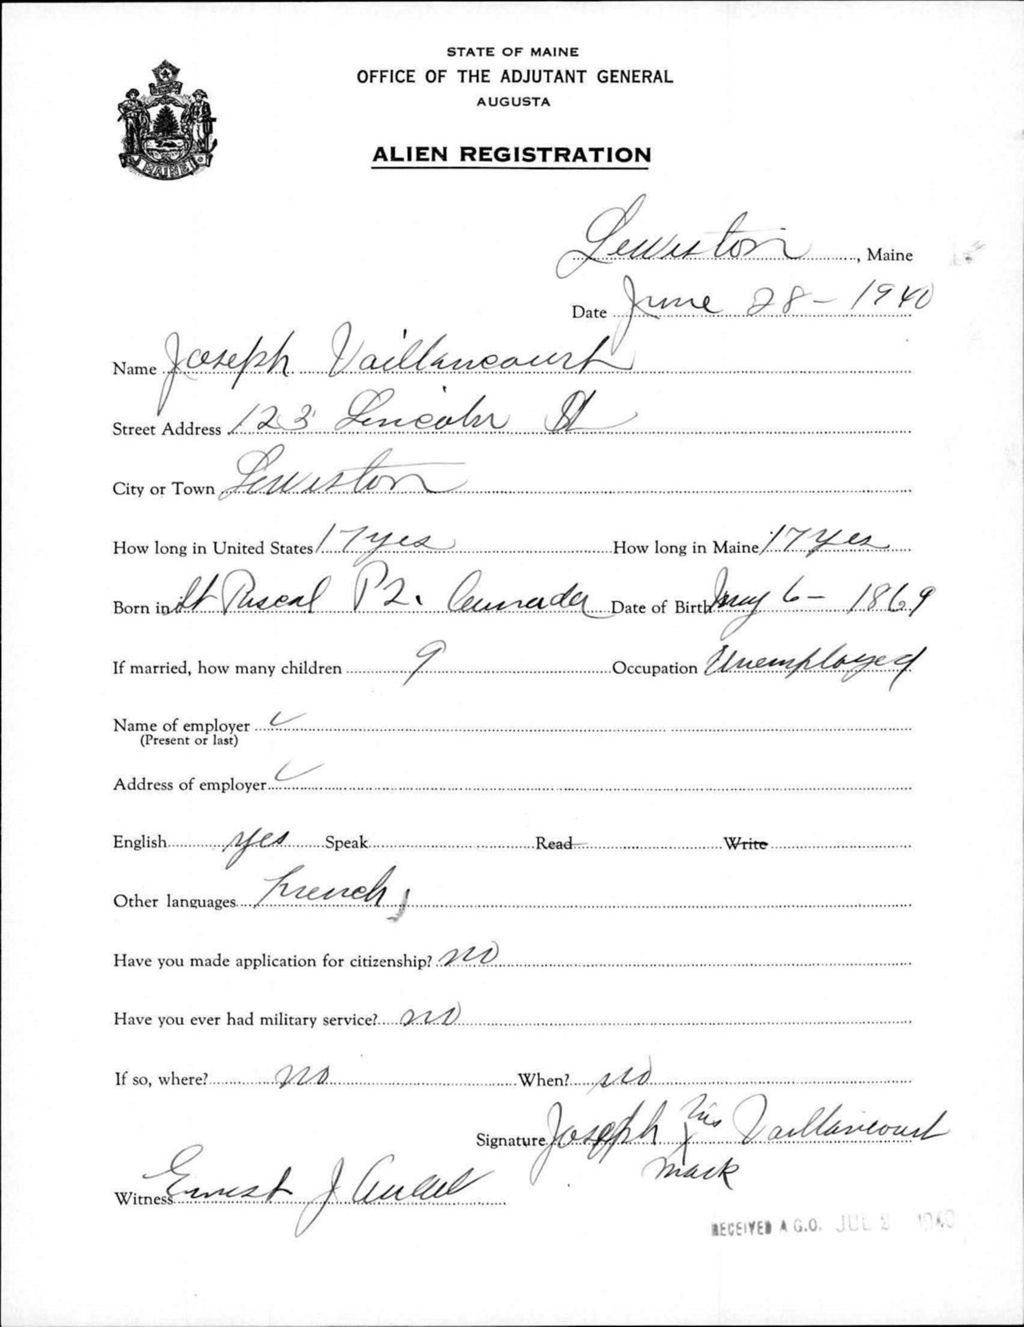 STATE OF MAINE
OFFICE OF THE ADJUTANT GENERAL
AUGUSTA
ALIEN REGISTRATION
MAINE
Lewiston, Maine
Date June 28 - 1940
Name Joseph Vaillancourt
Street Address 123 Lincoln St
City or Town Lewiston
How long in United States 17 yes How long in Maine 17 yes
Born in St Pascal P2. Canada Date of Birth May 6 - 1869
If married, how many children 9 Occupation Unemployed
Name of employer
(Present or last)
Address of employer
English yes Speak Read Write
Other languages French
Have you made application for citizenship? no
Have you ever had military service? no
If so, where? no When? no
Signature Joseph his X Vaillancourt
mark
Witness Ernest J
RECEIVED A.G.O. JUL 2 1940